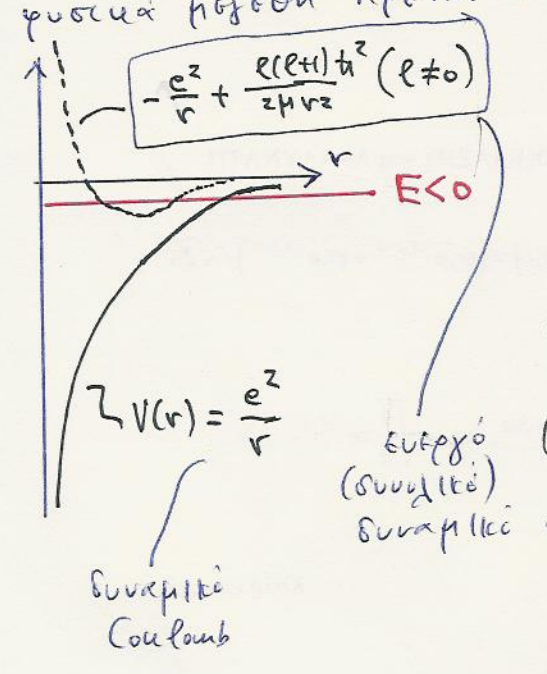 φυσικά
-e²/r + ℓ(ℓ+1)ħ²/2μr² (ℓ≠0)
r
E<0
V(r) = e²/r
ενεργό
(συνολικό)
δυναμικό
δυναμικό
Coulomb